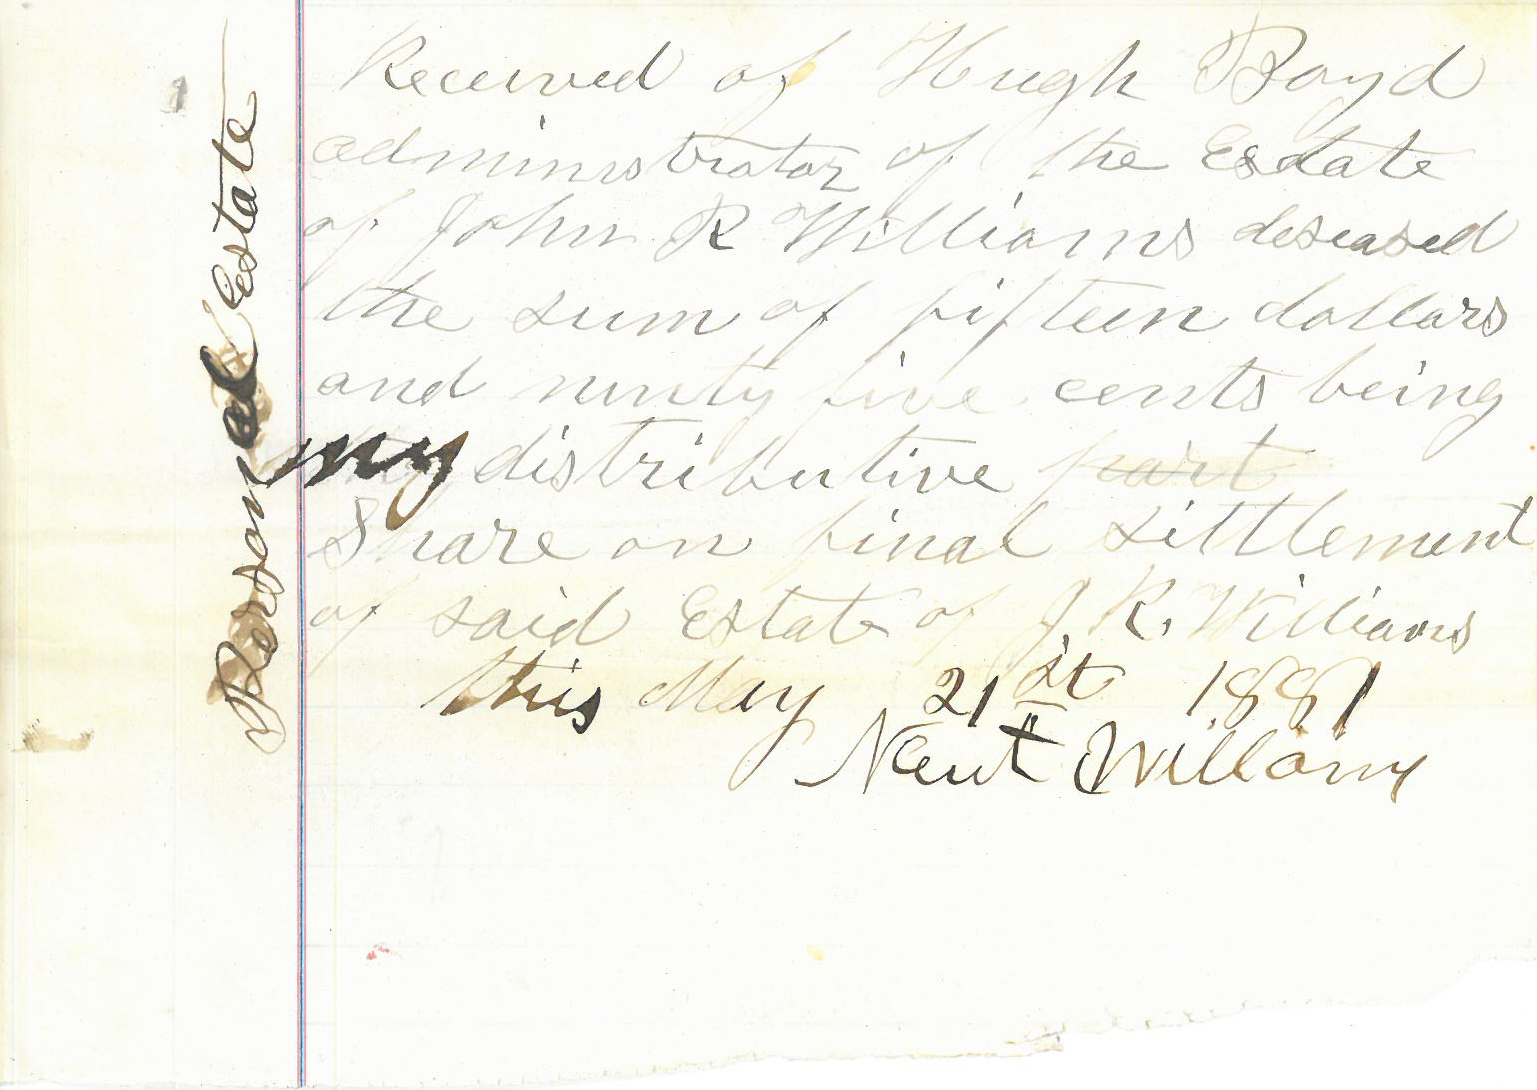 Personal Estate
Received of Hugh Boyd
administrator of the Esdate
of John R Williams deseased
the sum of fifteen dollars
and ninty five cents being
my distributive part
Share on final sittlement
of said Estate of J. R. Williams
this May 21st 1881
Williams